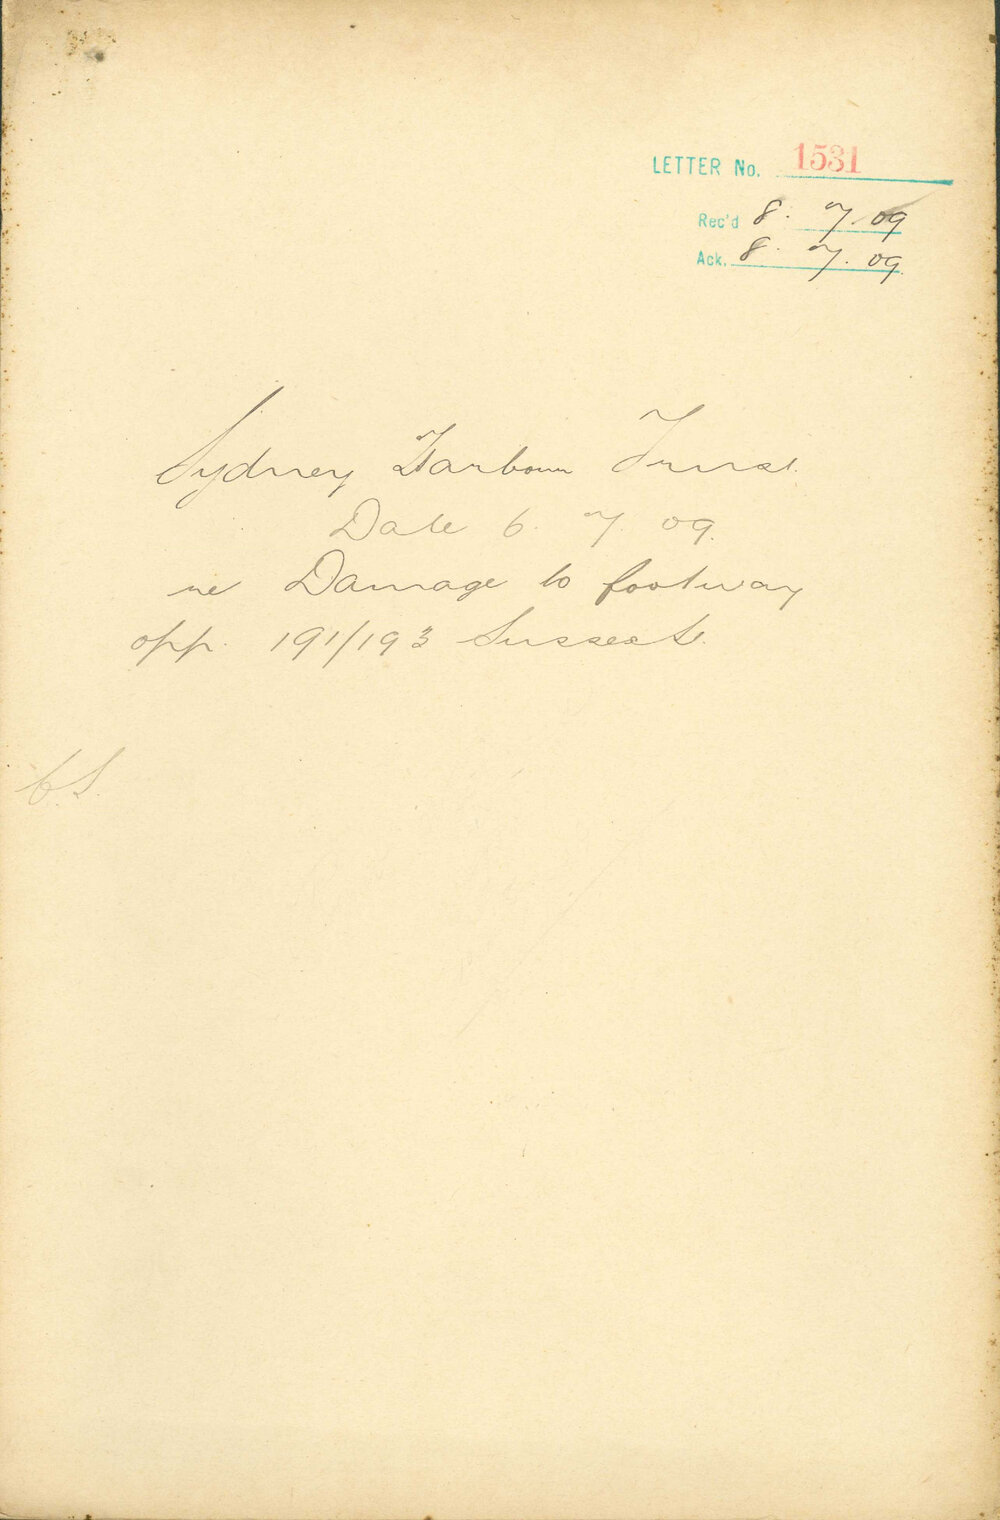 LETTER No. 1531
Rec'd 8. 7. 09
Ack. 8. 7. 09.
Sydney Harbour Trust.
Date 6. 7. 09.
re Damage to footway
opp. 191/193 Sussex St.